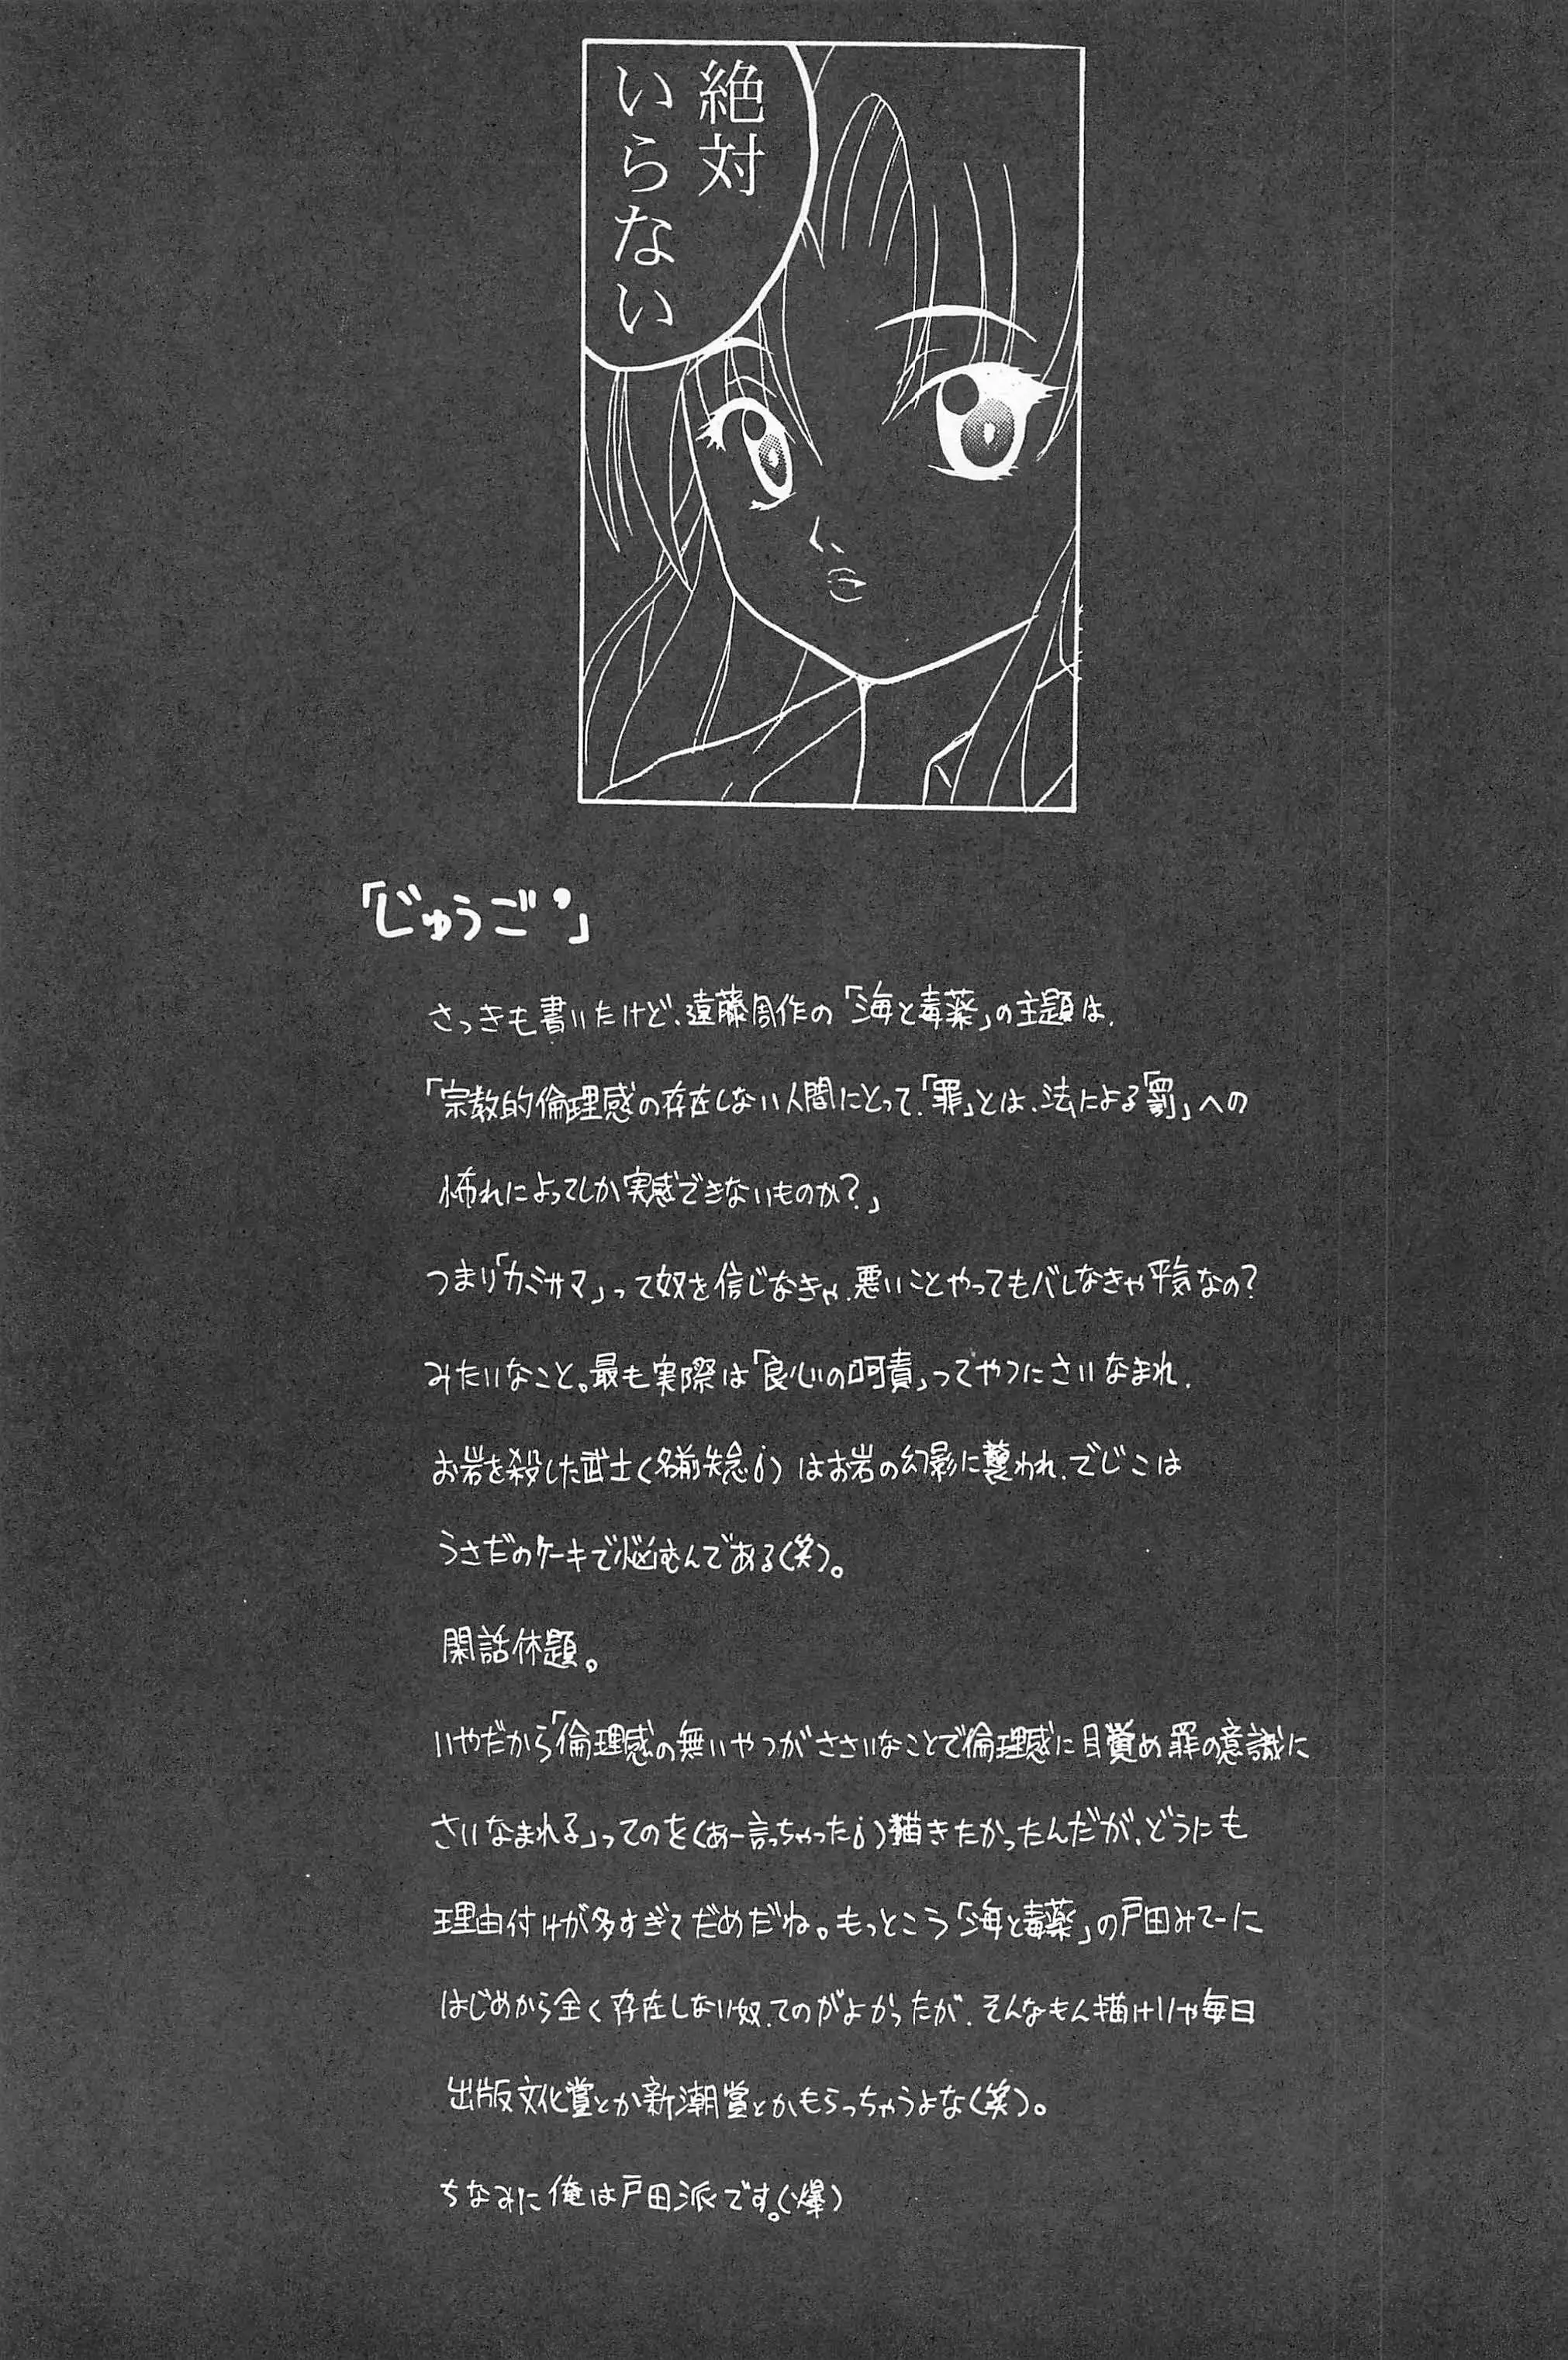 絶対
いらない
「じゅうご」
さっきも書いたけど、遠藤周作の「海と毒薬」の主題は、
「宗教的倫理感の存在しない人間にとって、「罪」とは、法による「罰」への
怖れによってしか実感できないものか？」
つまり「カミサマ」って奴を信じなきゃ、悪いことやってもバレなきゃ平気なの？
みたいなこと。最も実際は「良心の呵責」ってやつにさいなまれ、
お岩を殺した武士(名前失念¡)はお岩の幻影に襲われ、でじこは
うさだのケーキで悩むんである(笑)。
閑話休題。
いやだから「倫理感の無いやつがささいなことで倫理感に目覚め罪の意識に
さいなまれる」ってのを(あー言っちゃった¡)描きたかったんだが、どうにも
理由付けが多すぎてだめだね。もっとこう「海と毒薬」の戸田みてーに
はじめから全く存在しない奴、てのがよかったが、そんなもん描けりゃ毎日
出版文化賞とか新潮賞とかもらっちゃうよな(笑)。
ちなみに俺は戸田派です。(爆)